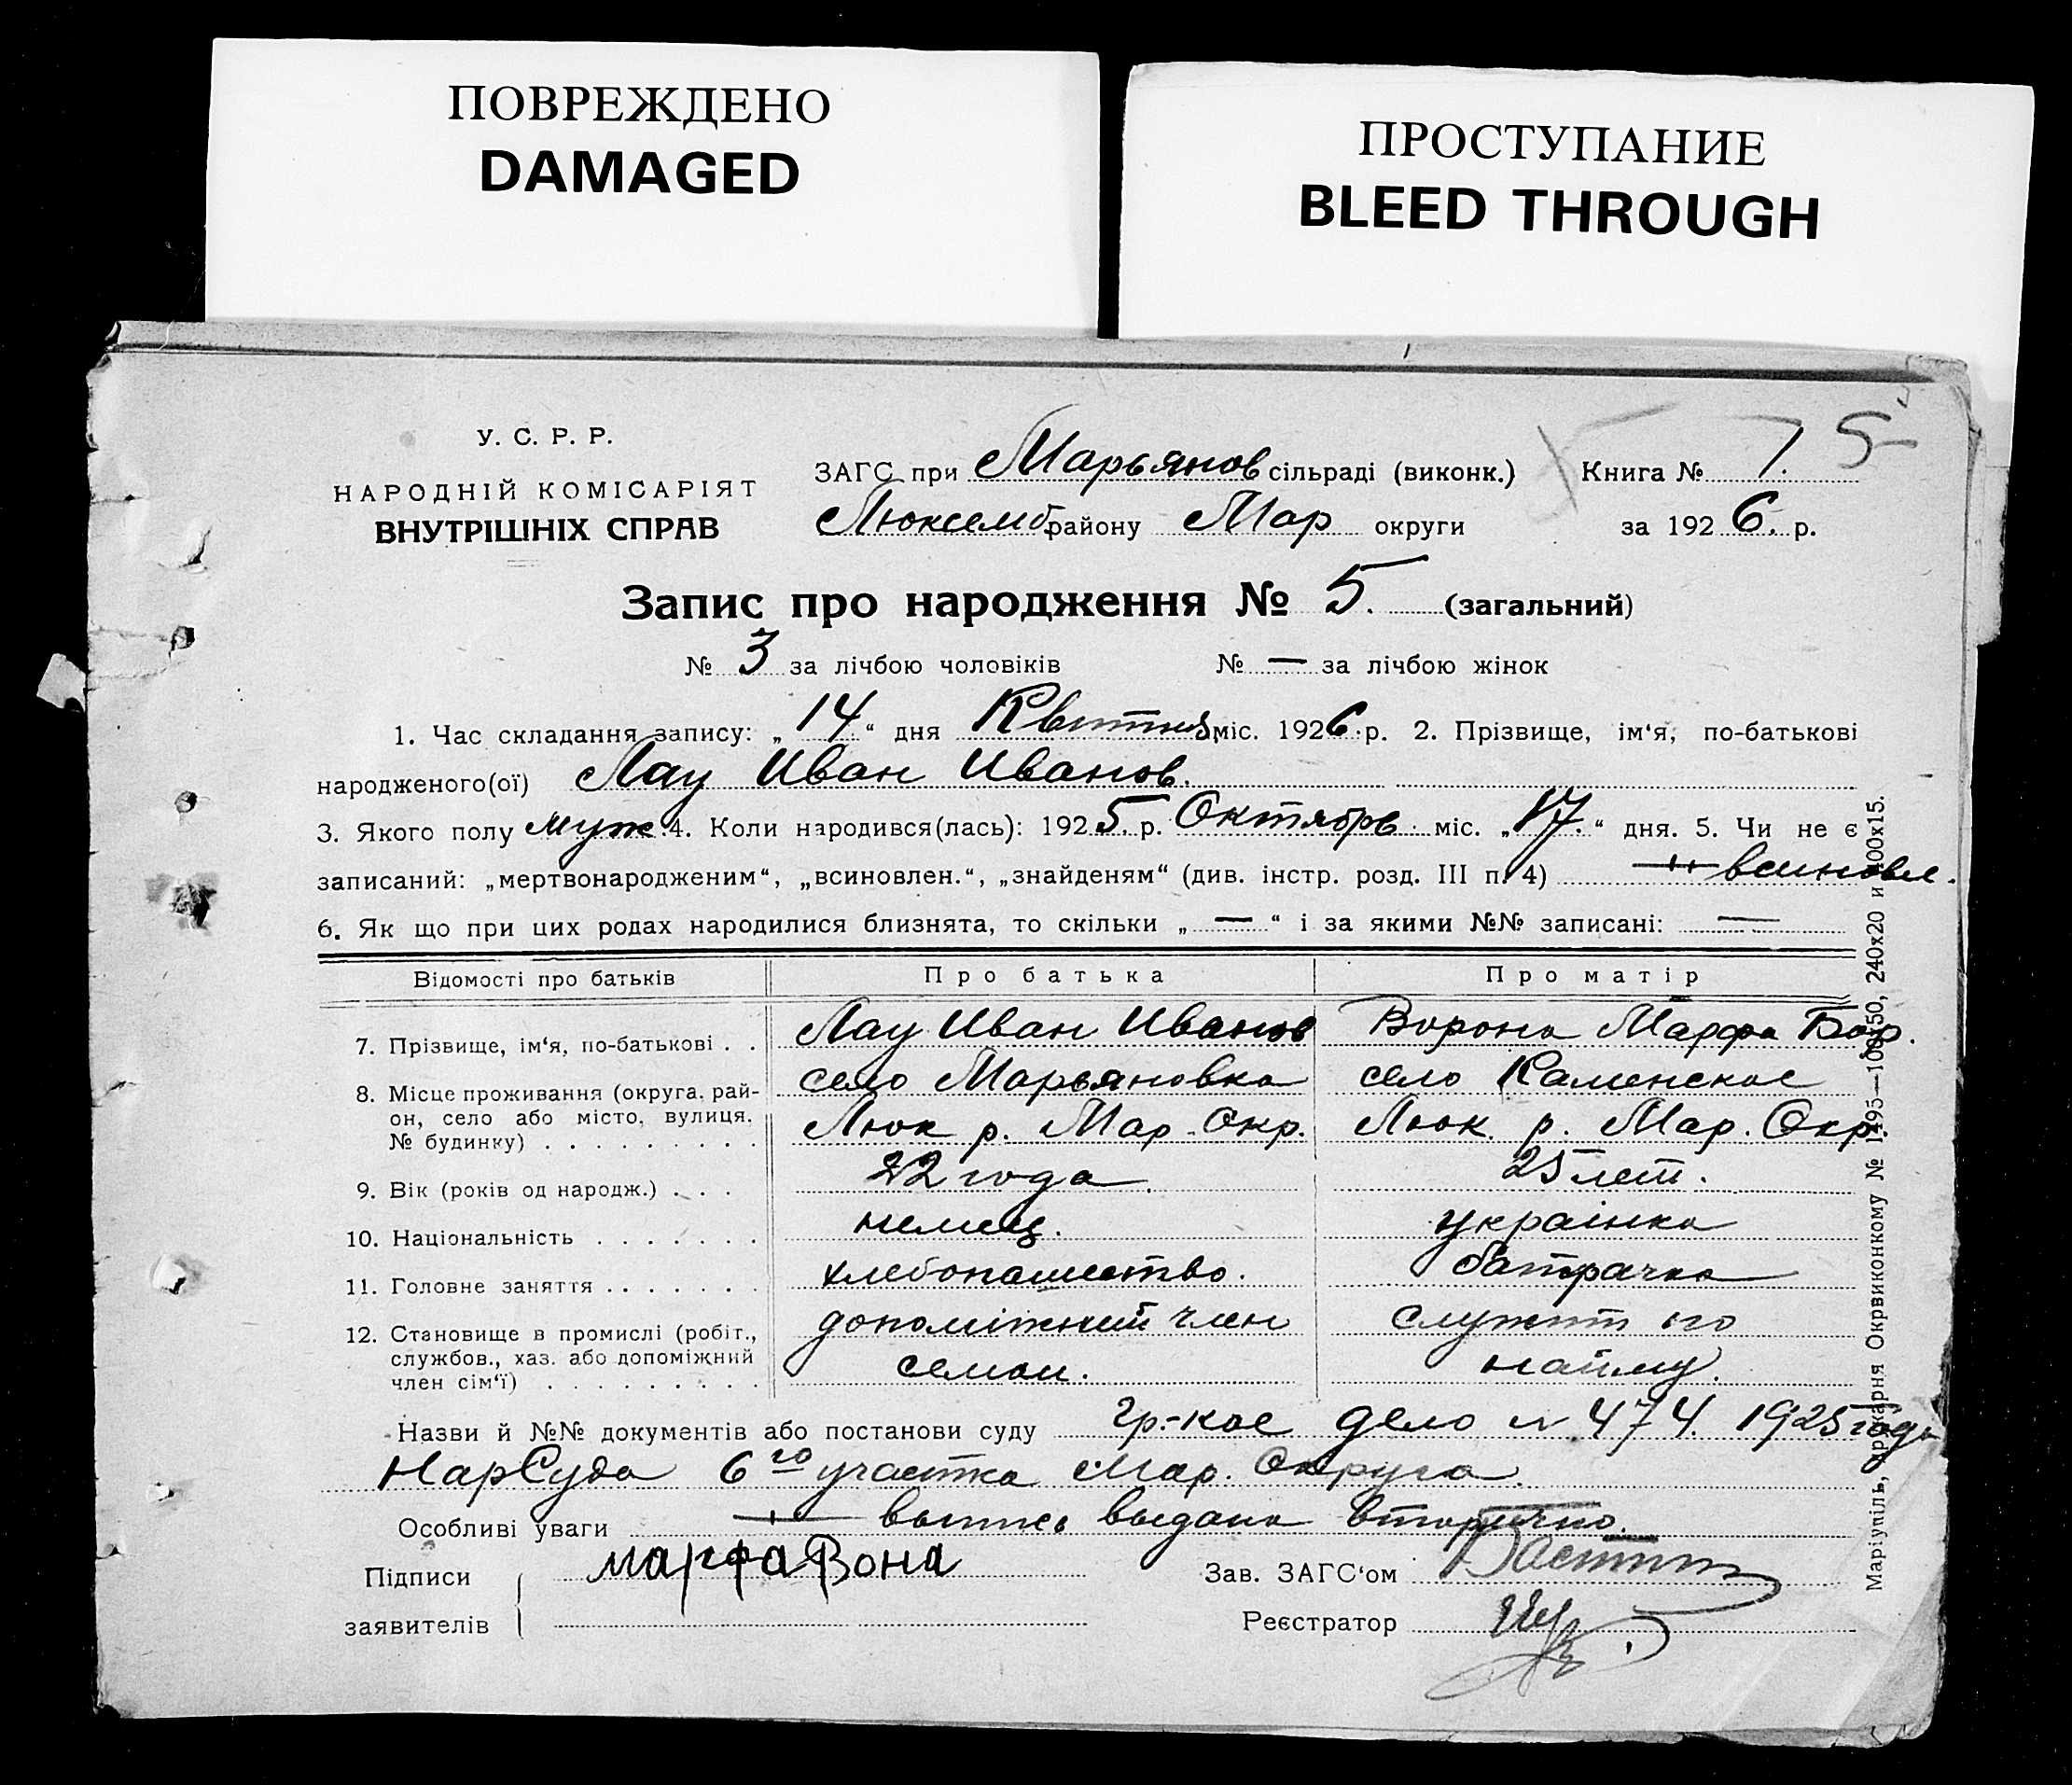 ПОВРЕЖДЕНО
DAMAGED
ПРОСТУПАНИЕ
BLEED THROUGH
5
У. С. Р. Р.
НАРОДНІЙ КОМІСАРІЯТ
ВНУТРІШНІХ СПРАВ
ЗАГС при Марьянов сільраді (виконк.) Книга № 1.
Люксемб району Мар округи за 1926. р.
Запис про народження № 5. (загальний)
№ 3 за лічбою чоловіків № — за лічбою жінок
1. Час складання запису: „14“ дня Квітня міс. 1926.р. 2. Прізвище, ім‘я, по-батькові
народженого(ої) Лау Иван Иванов.
3. Якого полу муж. 4. Коли народився(лась): 1925. р. Октябрь міс. „17.“ дня. 5. Чи не є
записаний: „мертвонародженим“, „всиновлен.“, „знайденям“ (див. інстр. розд. III п. 4) всиновл.
6. Як що при цих родах народилися близнята, то скільки „—“ і за якими №№ записані: —
Відомості про батьків Про батька Про матір
7. Прізвище, ім‘я, по-батькові . . Лау Иван Иванов Ворона Марфа Бор.
8. Місце проживання (округа, рай- село Марьяновка село Каменское
он, село або місто, вулиця,
№ будинку) . . . . . . . . . Люк р. Мар. Окр. Люк. р. Мар. Окр.
9. Вік (років од народж.) . . . 22 года. 25 лет.
10. Національність . . . . . . . немец. українка
11. Головне заняття . . . . . . . хлебопашество. батрачка
12. Становище в промислі (робіт., допоміжний член служит по
службов., хаз. або допоміжний семьи. найму.
член сім‘ї) . . . . . . . . .
Назви й №№ документів або постанови суду гр-кое дело № 474. 1925 года
НарСуда 6го участка Мар. Округа.
Особливі уваги выпись выдана вторично.
Підписи марфа Вона Зав. ЗАГС‘ом
заявителів Реєстратор
Маріупіль, друкарня Окрвиконкому № 1495—100х50, 240х20 и 400х15.